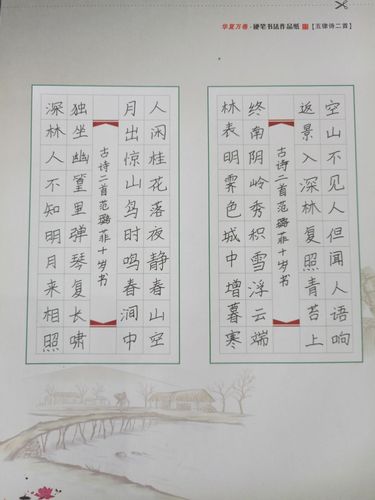 华夏万卷·硬笔书法作品纸 [五律诗二首]
空山不见人但闻人语响
返景入深林复照青苔上
古诗二首范璐菲十岁书
终南阴岭秀积雪浮云端
林表明霁色城中增暮寒
人闲桂花落夜静春山空
月出惊山鸟时鸣春涧中
古诗二首范璐菲十岁书
独坐幽篁里弹琴复长啸
深林人不知明月来相照